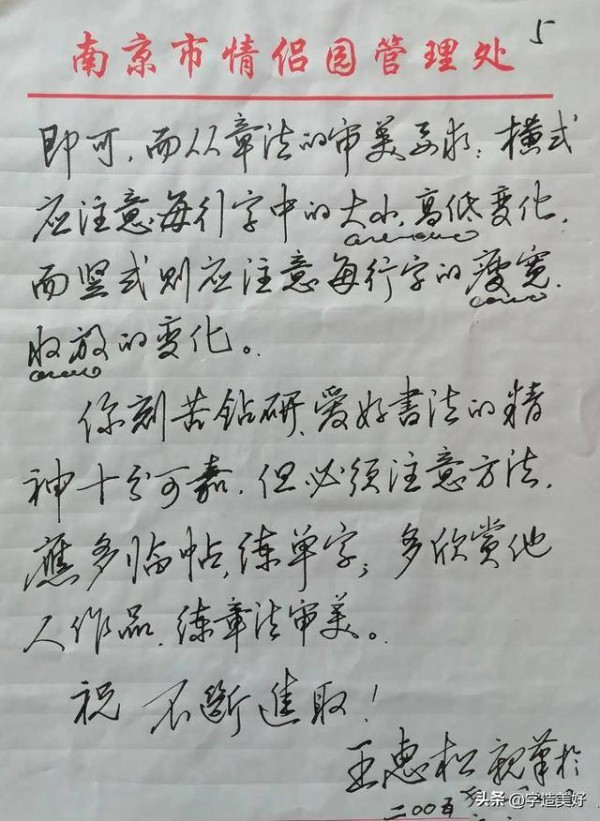 5
南京市情侣园管理处
即可，而从章法的审美要求：横式
应注意每行字中的大小，高低变化，
而竖式则应注意每行字的瘦宽，
收放的变化。
你刻苦钻研、爱好書法的精
神十分可嘉，但必须注意方法，
應多临帖，练单字；多欣赏他
人作品，练章法审美。
祝 不斷進取！
王惠松 親筆於
二00五
头条 @学造美好